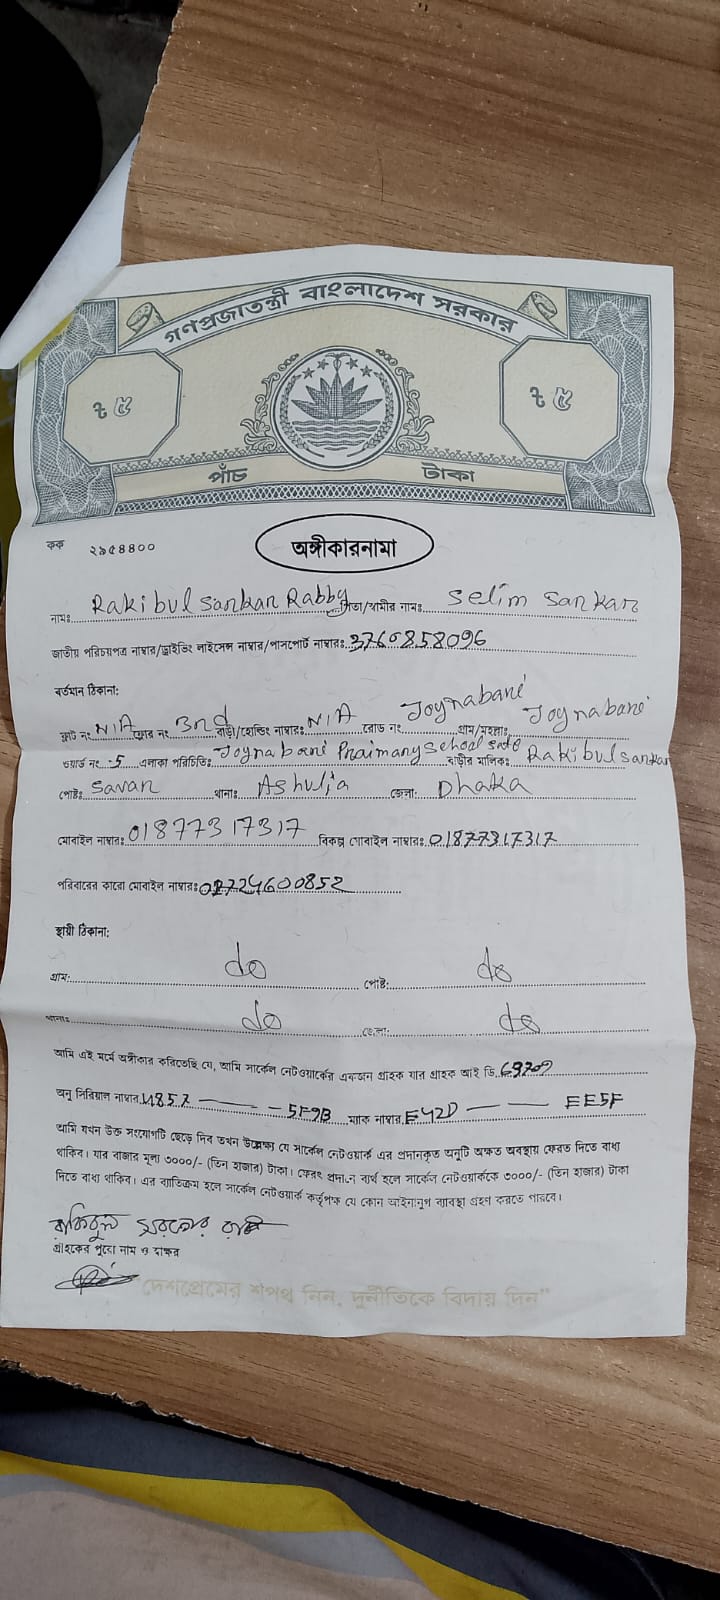 গণপ্রজাতন্ত্রী বাংলাদেশ সরকার
৳ ৫ ৳ ৫
পাঁচ টাকা
কক ২৯৫৪৪০০
অঙ্গীকারনামা
নামঃ Rakibul Sarkar Rabby পিতা/স্বামীর নামঃ Selim Sarkar
জাতীয় পরিচয়পত্র নাম্বার/ড্রাইভিং লাইসেন্স নাম্বার/পাসপোর্ট নাম্বারঃ 3760858096
বর্তমান ঠিকানা:
ফ্লাট নং N/A ফ্লোর নং 3rd বাড়ী/হোল্ডিং নাম্বারঃ N/A রোড নং Joynabari গ্রাম/মহল্লাঃ Joynabari
ওয়ার্ড নং 5 এলাকা পরিচিতিঃ Joynabari Praimary School বাড়ীর মালিকঃ Rakibul Sarkar
পোষ্টঃ Savar থানাঃ Ashulia জেলাঃ Dhaka
মোবাইল নাম্বারঃ 01877317317 বিকল্প মোবাইল নাম্বারঃ 01877317317
পরিবারের কারো মোবাইল নাম্বারঃ 01724600852
স্থায়ী ঠিকানা:
গ্রাম: do পোষ্ট: do
থানাঃ do জেলা: do
আমি এই মর্মে অঙ্গীকার করিতেছি যে, আমি সার্কেল নেটওয়ার্কের একজন গ্রাহক যার গ্রাহক আই ডি
অনু সিরিয়াল নাম্বার 4857 — — 5F9B ম্যাক নাম্বার E42D — — EE5F
আমি যখন উক্ত সংযোগটি ছেড়ে দিব তখন উল্লেক্ষ্য যে সার্কেল নেটওয়ার্ক এর প্রদানকৃত অনুটি অক্ষত অবস্থায় ফেরত দিতে বাধ্য
থাকিব। যার বাজার মূল্য ৩০০০/- (তিন হাজার) টাকা। ফেরৎ প্রদানে ব্যর্থ হলে সার্কেল নেটওয়ার্ককে ৩০০০/- (তিন হাজার) টাকা
দিতে বাধ্য থাকিব। এর ব্যতিক্রম হলে সার্কেল নেটওয়ার্ক কর্তৃপক্ষ যে কোন আইনানুগ ব্যাবস্থা গ্রহণ করতে পারবে।
রাকিবুল সরকার রাব্বি
গ্রাহকের পুরো নাম ও সাক্ষর
"দেশপ্রেমের শপথ নিন, দুর্নীতিকে বিদায় দিন"